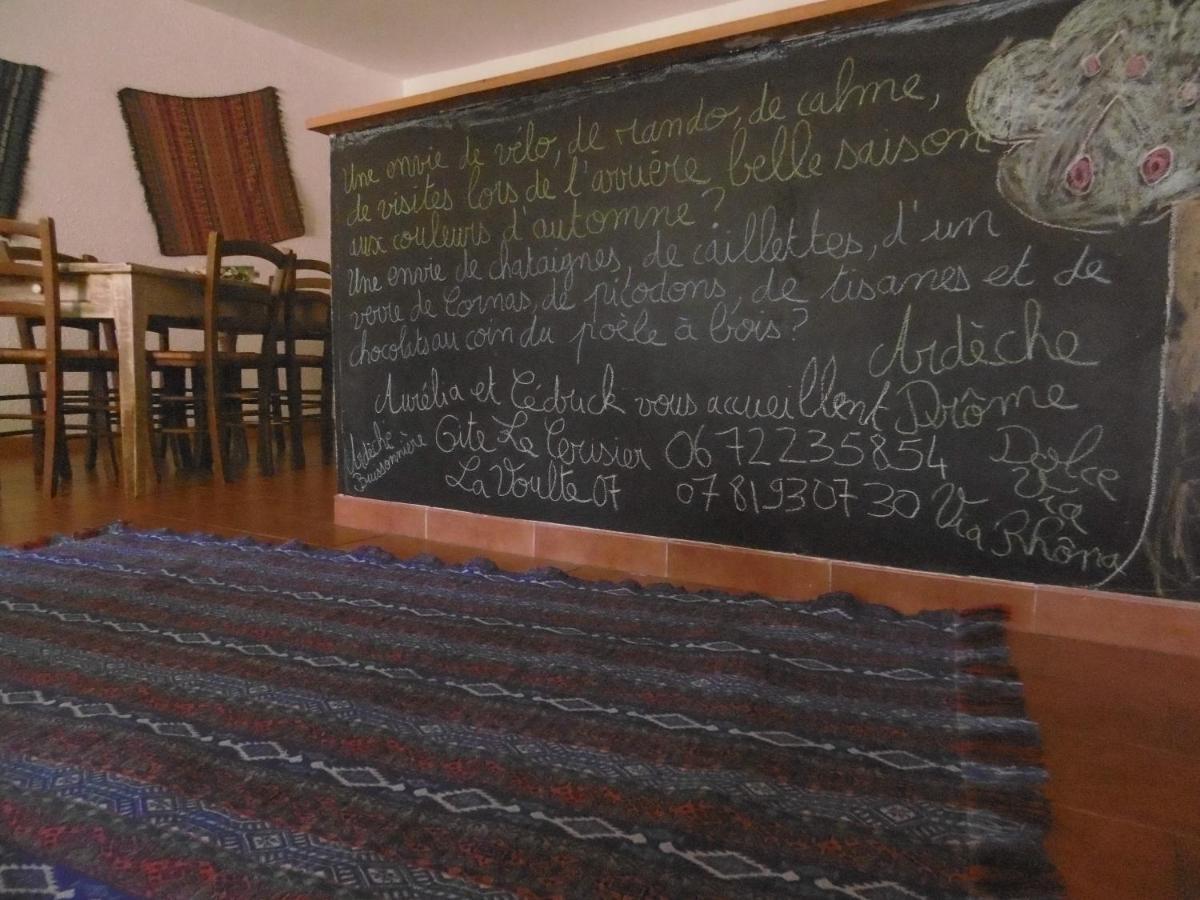 Une envie de vélo, de rando, de calme,
de visites lors de l'arrière belle saison
aux couleurs d'automne ?
Une envie de chataignes, de caillettes, d'un
verre de Cornas, de picodons, de tisanes et de
chocolats au coin du poèle à bois ?
Ardèche
Aurélia et Cédrick vous accueillent Drôme
Ardèche
Buissonnière
Gite Le Cerisier 06 72235854
La Voulte 07 07 81930730
Dolce
Via
Via Rhôna